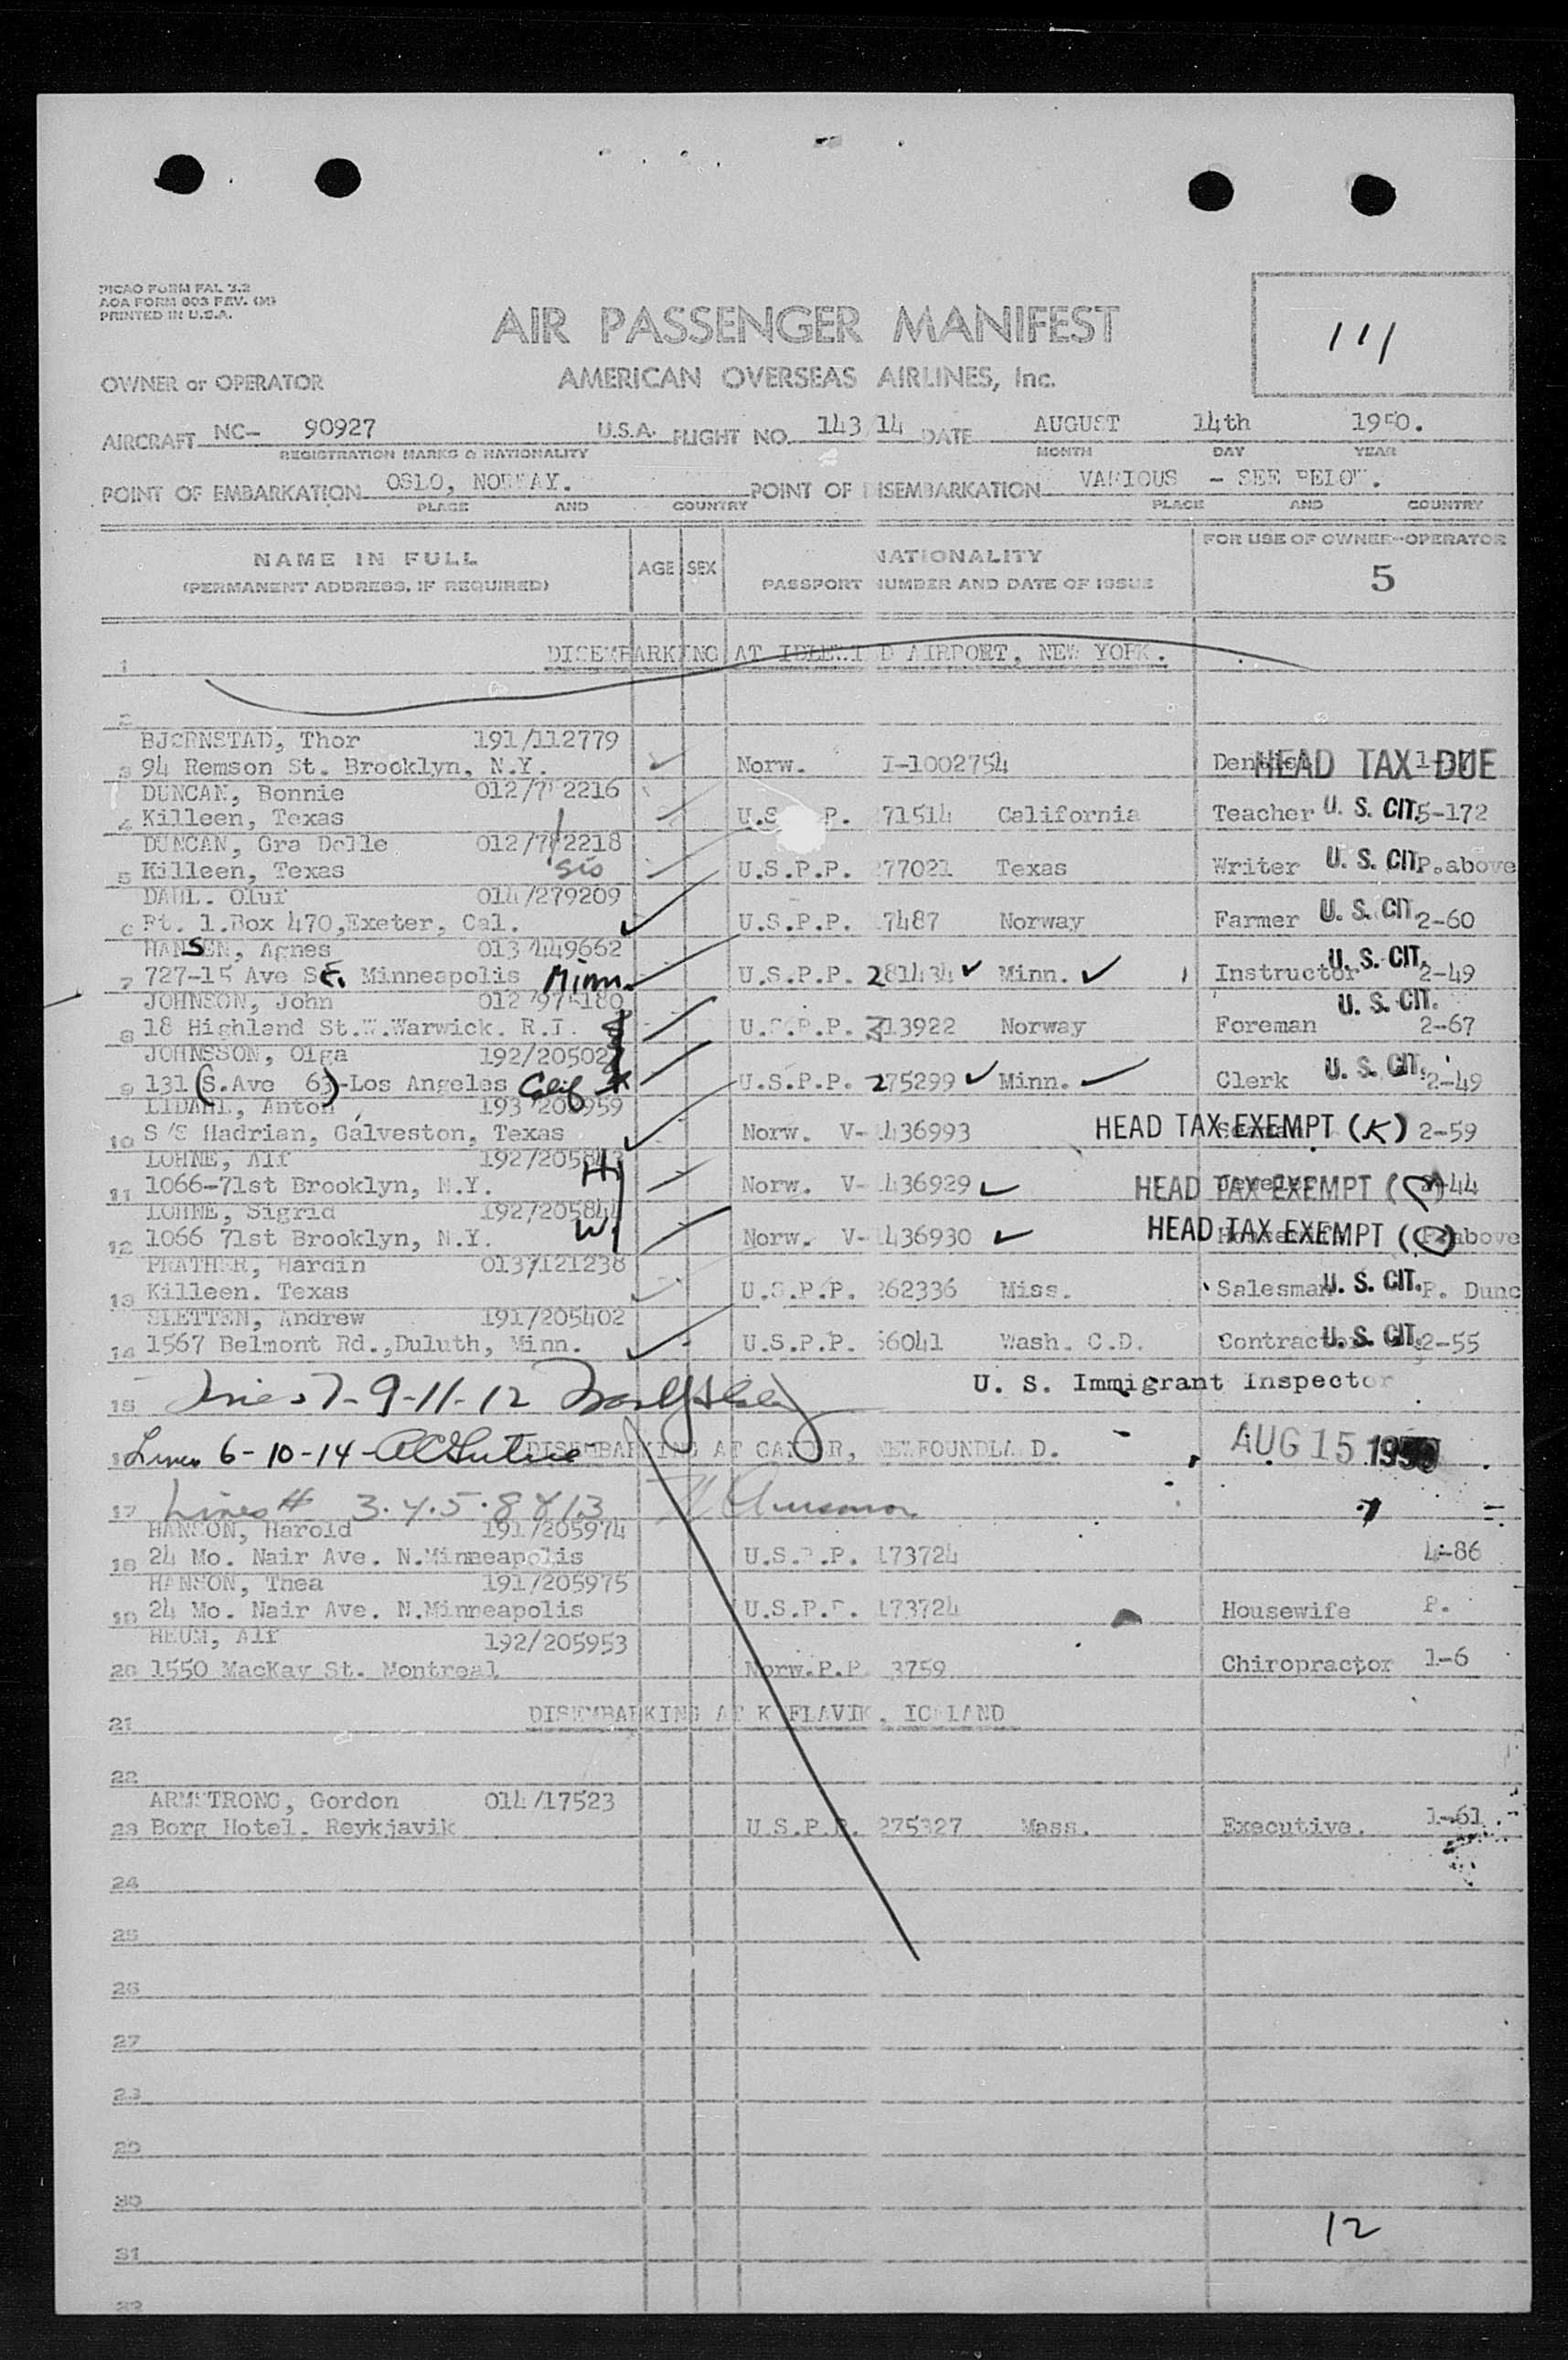 PICAO FORM FAL 3.2
AOA FORM 603 REV. (M)
PRINTED IN U.S.A.
AIR PASSENGER MANIFEST
111
OWNER or OPERATOR
AMERICAN OVERSEAS AIRLINES, Inc.
AIRCRAFT NC- 90927 U.S.A. FLIGHT NO. 143/14 DATE AUGUST 14th 1950.
REGISTRATION MARKS & NATIONALITY MONTH DAY YEAR
POINT OF EMBARKATION OSLO, NORWAY. POINT OF DISEMBARKATION VARIOUS - SEE BELOW.
PLACE AND COUNTRY PLACE AND COUNTRY
NAME IN FULL
(PERMANENT ADDRESS, IF REQUIRED)
AGE SEX
NATIONALITY
PASSPORT NUMBER AND DATE OF ISSUE
FOR USE OF OWNER-OPERATOR
5
1 DISEMBARKING AT IDLEWILD AIRPORT, NEW YORK.
2
BJORNSTAD, Thor 191/112779
3 94 Remson St. Brooklyn, N.Y. Norw. I-1002754 HEAD TAX DUE
DUNCAN, Bonnie 012/7 2216
4 Killeen, Texas U.S. P. 71514 California Teacher U. S. CIT. 5-172
DUNCAN, Gra Delle 012/7 2218
5 Killeen, Texas sis U.S.P.P. 277021 Texas Writer U. S. CIT. P.above
DAHL. Oluf 014/279209
6 Rt. 1.Box 470,Exeter, Cal. U.S.P.P. 7487 Norway Farmer U. S. CIT. 2-60
HANSEN, Agnes 013/449662
7 727-15 Ave SE. Minneapolis Minn. U.S.P.P. 281434 Minn. Instructor U. S. CIT. 2-49
JOHNSON, John 012/975180
8 18 Highland St.W.Warwick. R.I. U.S.P.P. 313922 Norway Foreman U. S. CIT. 2-67
JOHNSSON, Olga 192/20502
9 131 (S.Ave 63)-Los Angeles Calif U.S.P.P. 275299 Minn. Clerk U. S. CIT. 2-49
LIDAHL, Anton 193/205959
10 S/S Hadrian, Galveston, Texas Norw. V- 436993 HEAD TAX EXEMPT (K) 2-59
LOHNE, Alf 192/205843
11 1066-71st Brooklyn, N.Y. H Norw. V- 436929 HEAD TAX EXEMPT ( ) -44
LOHNE, Sigrid 192/205844
12 1066 71st Brooklyn, N.Y. W Norw. V- 436930 HEAD TAX EXEMPT ( ) above
PRATHER, Hardin 013/121238
13 Killeen. Texas U.S.P.P. 262336 Miss. Salesman U. S. CIT. P. Dunc
SLETTEN, Andrew 191/205402
14 1567 Belmont Rd.,Duluth, Minn. U.S.P.P. 56041 Wash. C.D. Contractor U. S. CIT. 2-55
15 Lines 7-9-11-12 U. S. Immigrant Inspector
Lines 6-10-14- DISEMBARKING AT GANDER, NEWFOUNDLAND. AUG 15 1950
17 Lines # 3.4.5.8 & 13
HANSON, Harold 191/205974
18 24 Mo. Nair Ave. N.Minneapolis U.S.P.P. 173724 4-86
HANSON, Thea 191/205975
19 24 Mo. Nair Ave. N.Minneapolis U.S.P.P. 173724 Housewife P.
HEUM, Alf 192/205953
20 1550 MacKay St. Montreal Norw.P.P. 3759 Chiropractor 1-6
21 DISEMBARKING AT KEFLAVIK, ICELAND
22
ARMSTRONG, Gordon 014/17523
23 Borg Hotel. Reykjavik U.S.P.P. 275327 Mass. Executive. 1-61
24
25
26
27
28
29
30
12
31
32